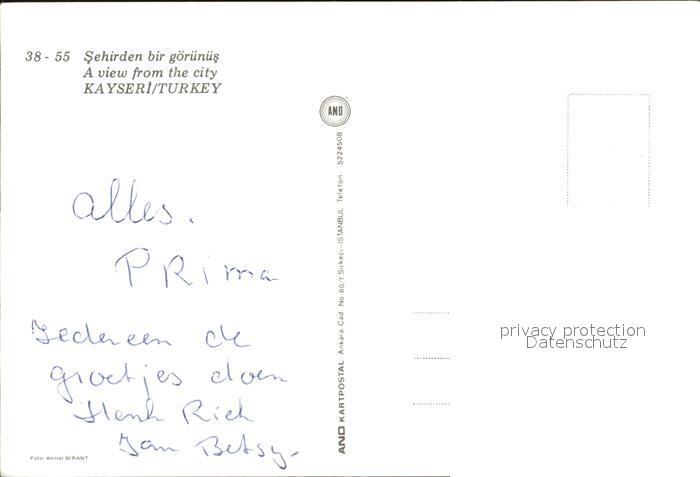 38 - 55 Şehirden bir görünüş
A view from the city
KAYSERİ/TURKEY
AND
AND KARTPOSTAL Ankara Cad. No 60/1 Sirkeci-İSTANBUL Telefon: 5224508
alles.
PRima
Iedereen de
groetjes doen
Henk Rich
Jan Betsy-
Foto: Ahmet BERANT
privacy protection
Datenschutz